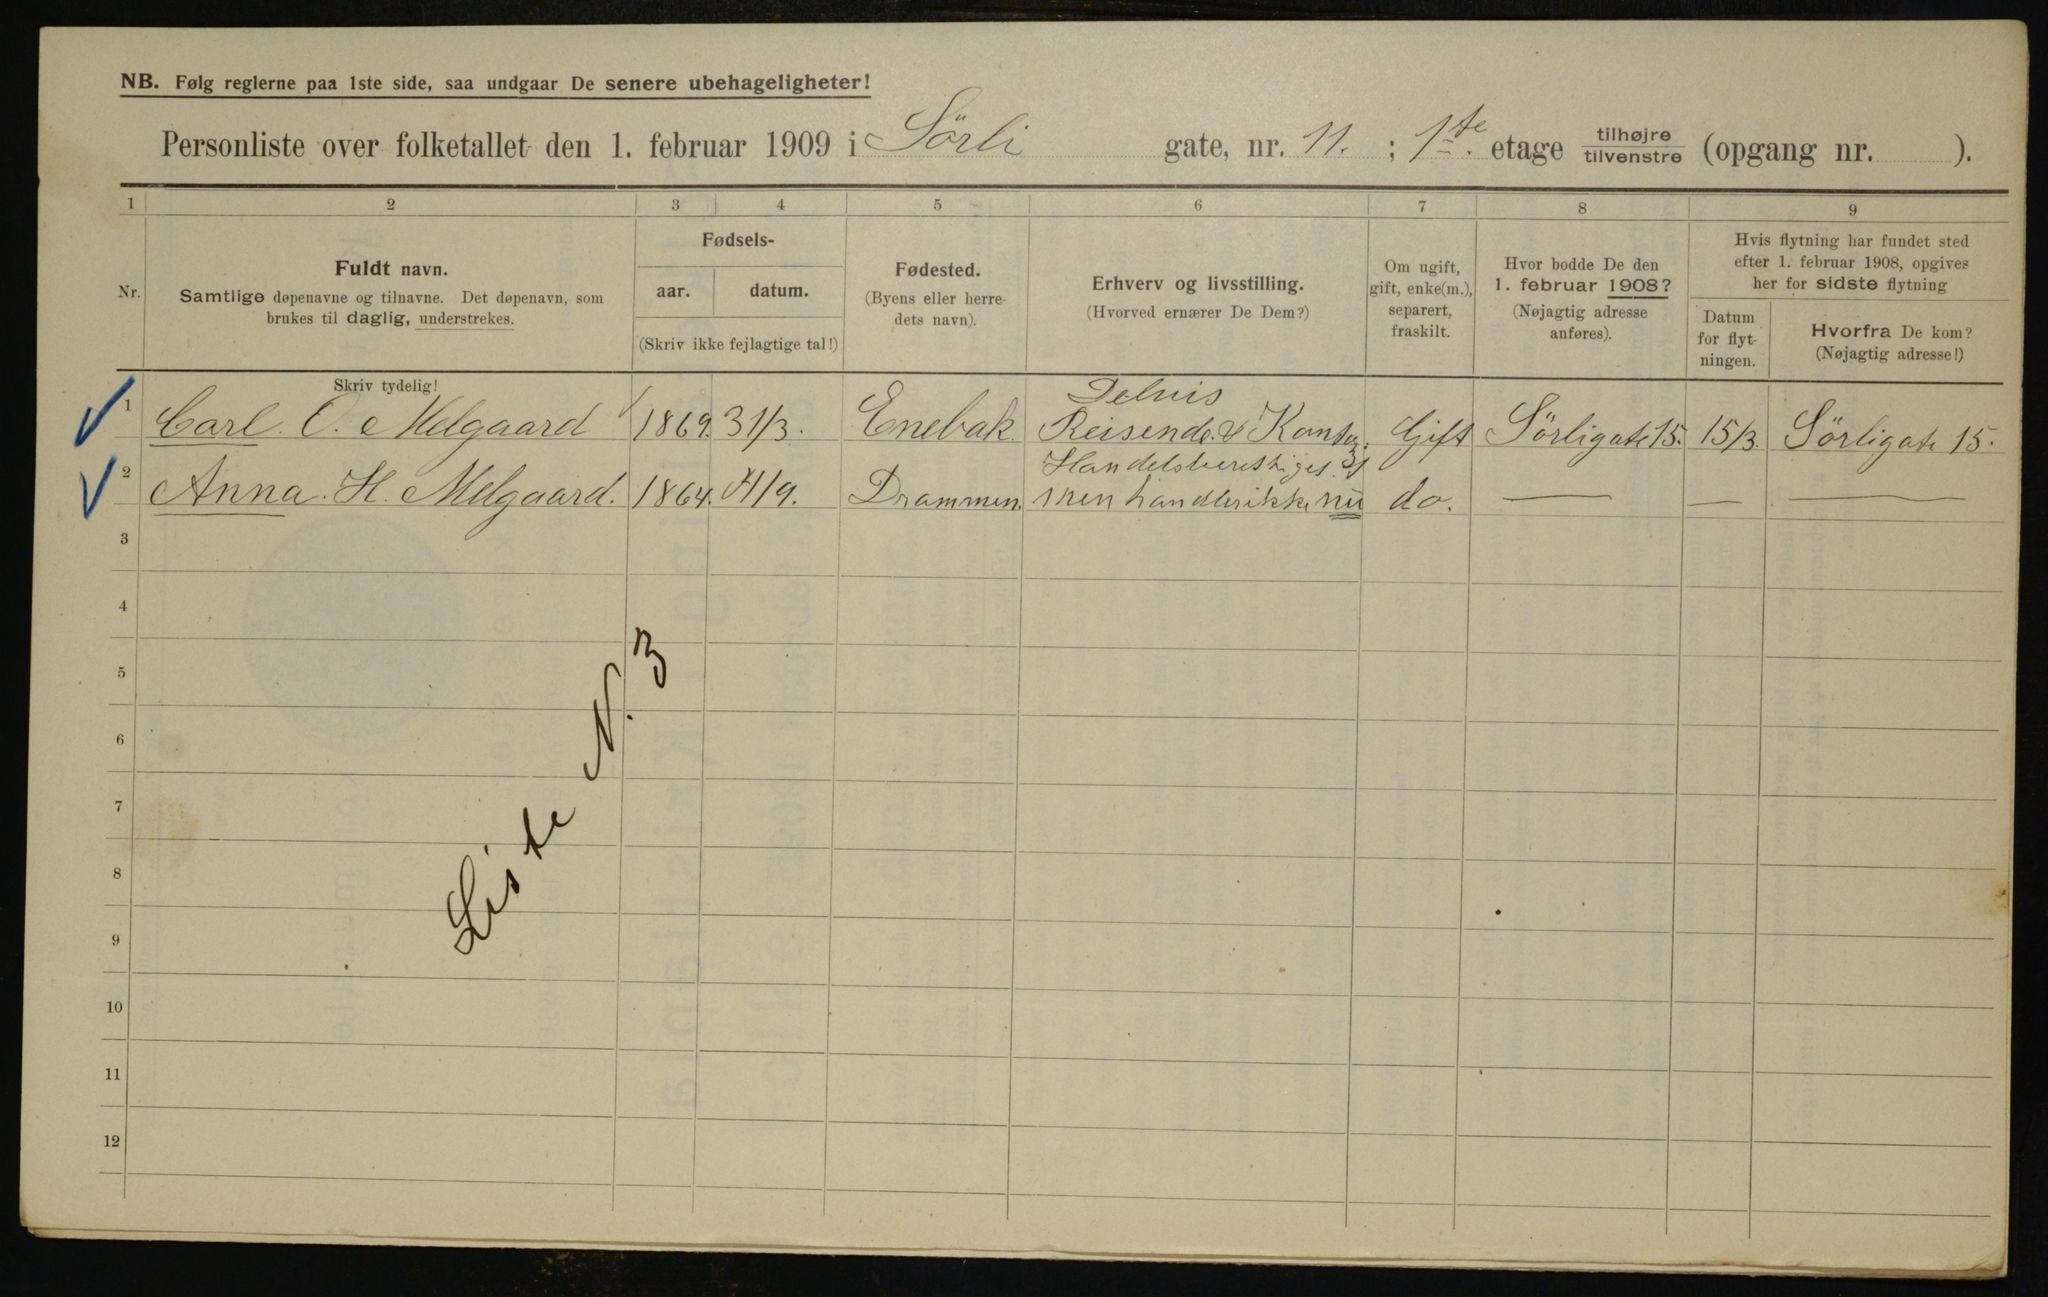 NB. Følg reglerne paa 1ste side, saa undgaar De senere ubehageligheter!
Personliste over folketallet den 1. februar 1909 i Sörli gate, nr. 11. ; 1ste. etage tilhøjre tilvenstre (opgang nr. ).
1 2 3 4 5 6 7 8 9
Nr.
Fuldt navn.
Samtlige døpenavne og tilnavne. Det døpenavn, som
brukes til daglig, understrekes.
Fødsels-
aar. datum.
(Skriv ikke fejlagtige tal!)
Fødested.
(Byens eller herre-
dets navn).
Erhverv og livsstilling.
(Hvorved ernærer De Dem?)
Om ugift,
gift, enke(m.),
separert,
fraskilt.
Hvor bodde De den
1. februar 1908?
(Nøjagtig adresse
anføres).
Hvis flytning har fundet sted
efter 1. februar 1908, opgives
her for sidste flytning
Datum
for flyt-
ningen.
Hvorfra De kom?
(Nøjagtig adresse!)
Skriv tydelig!
Delvis
1 Carl. O. Melgaard 1869. 31/3. Enebak. Reisende. & Gift Sörligate 15. 15/3. Sörligate 15.
2 Anna. H. Melgaard. 1864. 9. Drammen. men handler ikke nu do. — — —
3
4
5
6
7
8
9
10
11
12
Liste N. 3